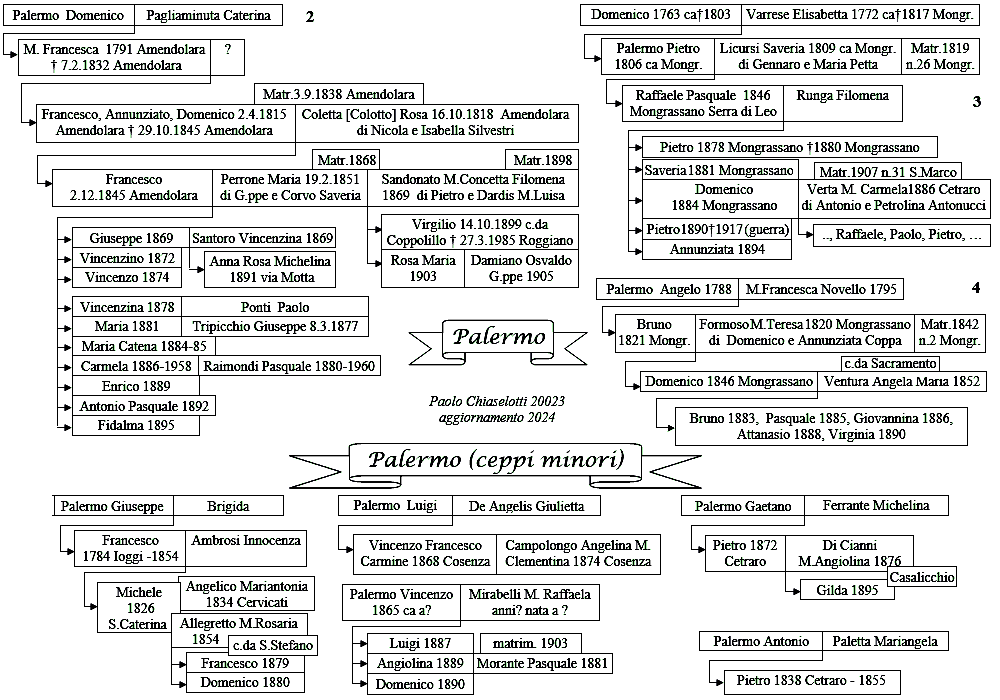 Palermo Domenico
Pagliaminuta Caterina
2
M. Francesca 1791 Amendolara
† 7.2.1832 Amendolara
?
Matr.3.9.1838 Amendolara
Francesco, Annunziato, Domenico 2.4.1815
Amendolara † 29.10.1845 Amendolara
Coletta [Colotto] Rosa 16.10.1818 Amendolara
di Nicola e Isabella Silvestri
Matr.1868
Matr.1898
Francesco
2.12.1845 Amendolara
Perrone Maria 19.2.1851
di G.ppe e Corvo Saveria
Sandonato M.Concetta Filomena
1869 di Pietro e Dardis M.Luisa
Giuseppe 1869
Santoro Vincenzina 1869
Vincenzino 1872
Vincenzo 1874
Anna Rosa Michelina
1891 via Motta
Virgilio 14.10.1899 c.da
Coppolillo † 27.3.1985 Roggiano
Rosa Maria
1903
Damiano Osvaldo
G.ppe 1905
Vincenzina 1878
Ponti Paolo
Maria 1881
Tripicchio Giuseppe 8.3.1877
Maria Catena 1884-85
Carmela 1886-1958
Raimondi Pasquale 1880-1960
Enrico 1889
Antonio Pasquale 1892
Fidalma 1895
Domenico 1763 ca†1803
Varrese Elisabetta 1772 ca†1817 Mongr.
Palermo Pietro
1806 ca Mongr.
Licursi Saveria 1809 ca Mongr.
di Gennaro e Maria Petta
Matr.1819
n.26 Mongr.
Raffaele Pasquale 1846
Mongrassano Serra di Leo
Runga Filomena
3
Pietro 1878 Mongrassano †1880 Mongrassano
Saveria1881 Mongrassano
Matr.1907 n.31 S.Marco
Domenico
1884 Mongrassano
Verta M. Carmela1886 Cetraro
di Antonio e Petrolina Antonucci
Pietro1890†1917(guerra)
.., Raffaele, Paolo, Pietro, ...
Annunziata 1894
Palermo Angelo 1788
M.Francesca Novello 1795
4
Bruno
1821 Mongr.
FormosoM.Teresa1820 Mongrassano
di Domenico e Annunziata Coppa
Matr.1842
n.2 Mongr.
c.da Sacramento
Domenico 1846 Mongrassano
Ventura Angela Maria 1852
Bruno 1883, Pasquale 1885, Giovannina 1886,
Attanasio 1888, Virginia 1890
Palermo
Paolo Chiaselotti 20023
aggiornamento 2024
Palermo (ceppi minori)
Palermo Giuseppe
Brigida
Francesco
1784 Ioggi -1854
Ambrosi Innocenza
Michele
1826
S.Caterina
Angelico Mariantonia
1834 Cervicati
Allegretto M.Rosaria
1854
c.da S.Stefano
Francesco 1879
Domenico 1880
Palermo Luigi
De Angelis Giulietta
Vincenzo Francesco
Carmine 1868 Cosenza
Campolongo Angelina M.
Clementina 1874 Cosenza
Palermo Vincenzo
1865 ca a?
Mirabelli M. Raffaela
anni? nata a ?
Luigi 1887
matrim. 1903
Angiolina 1889
Morante Pasquale 1881
Domenico 1890
Palermo Gaetano
Ferrante Michelina
Pietro 1872
Cetraro
Di Cianni
M.Angiolina 1876
Casalicchio
Gilda 1895
Palermo Antonio
Paletta Mariangela
Pietro 1838 Cetraro - 1855